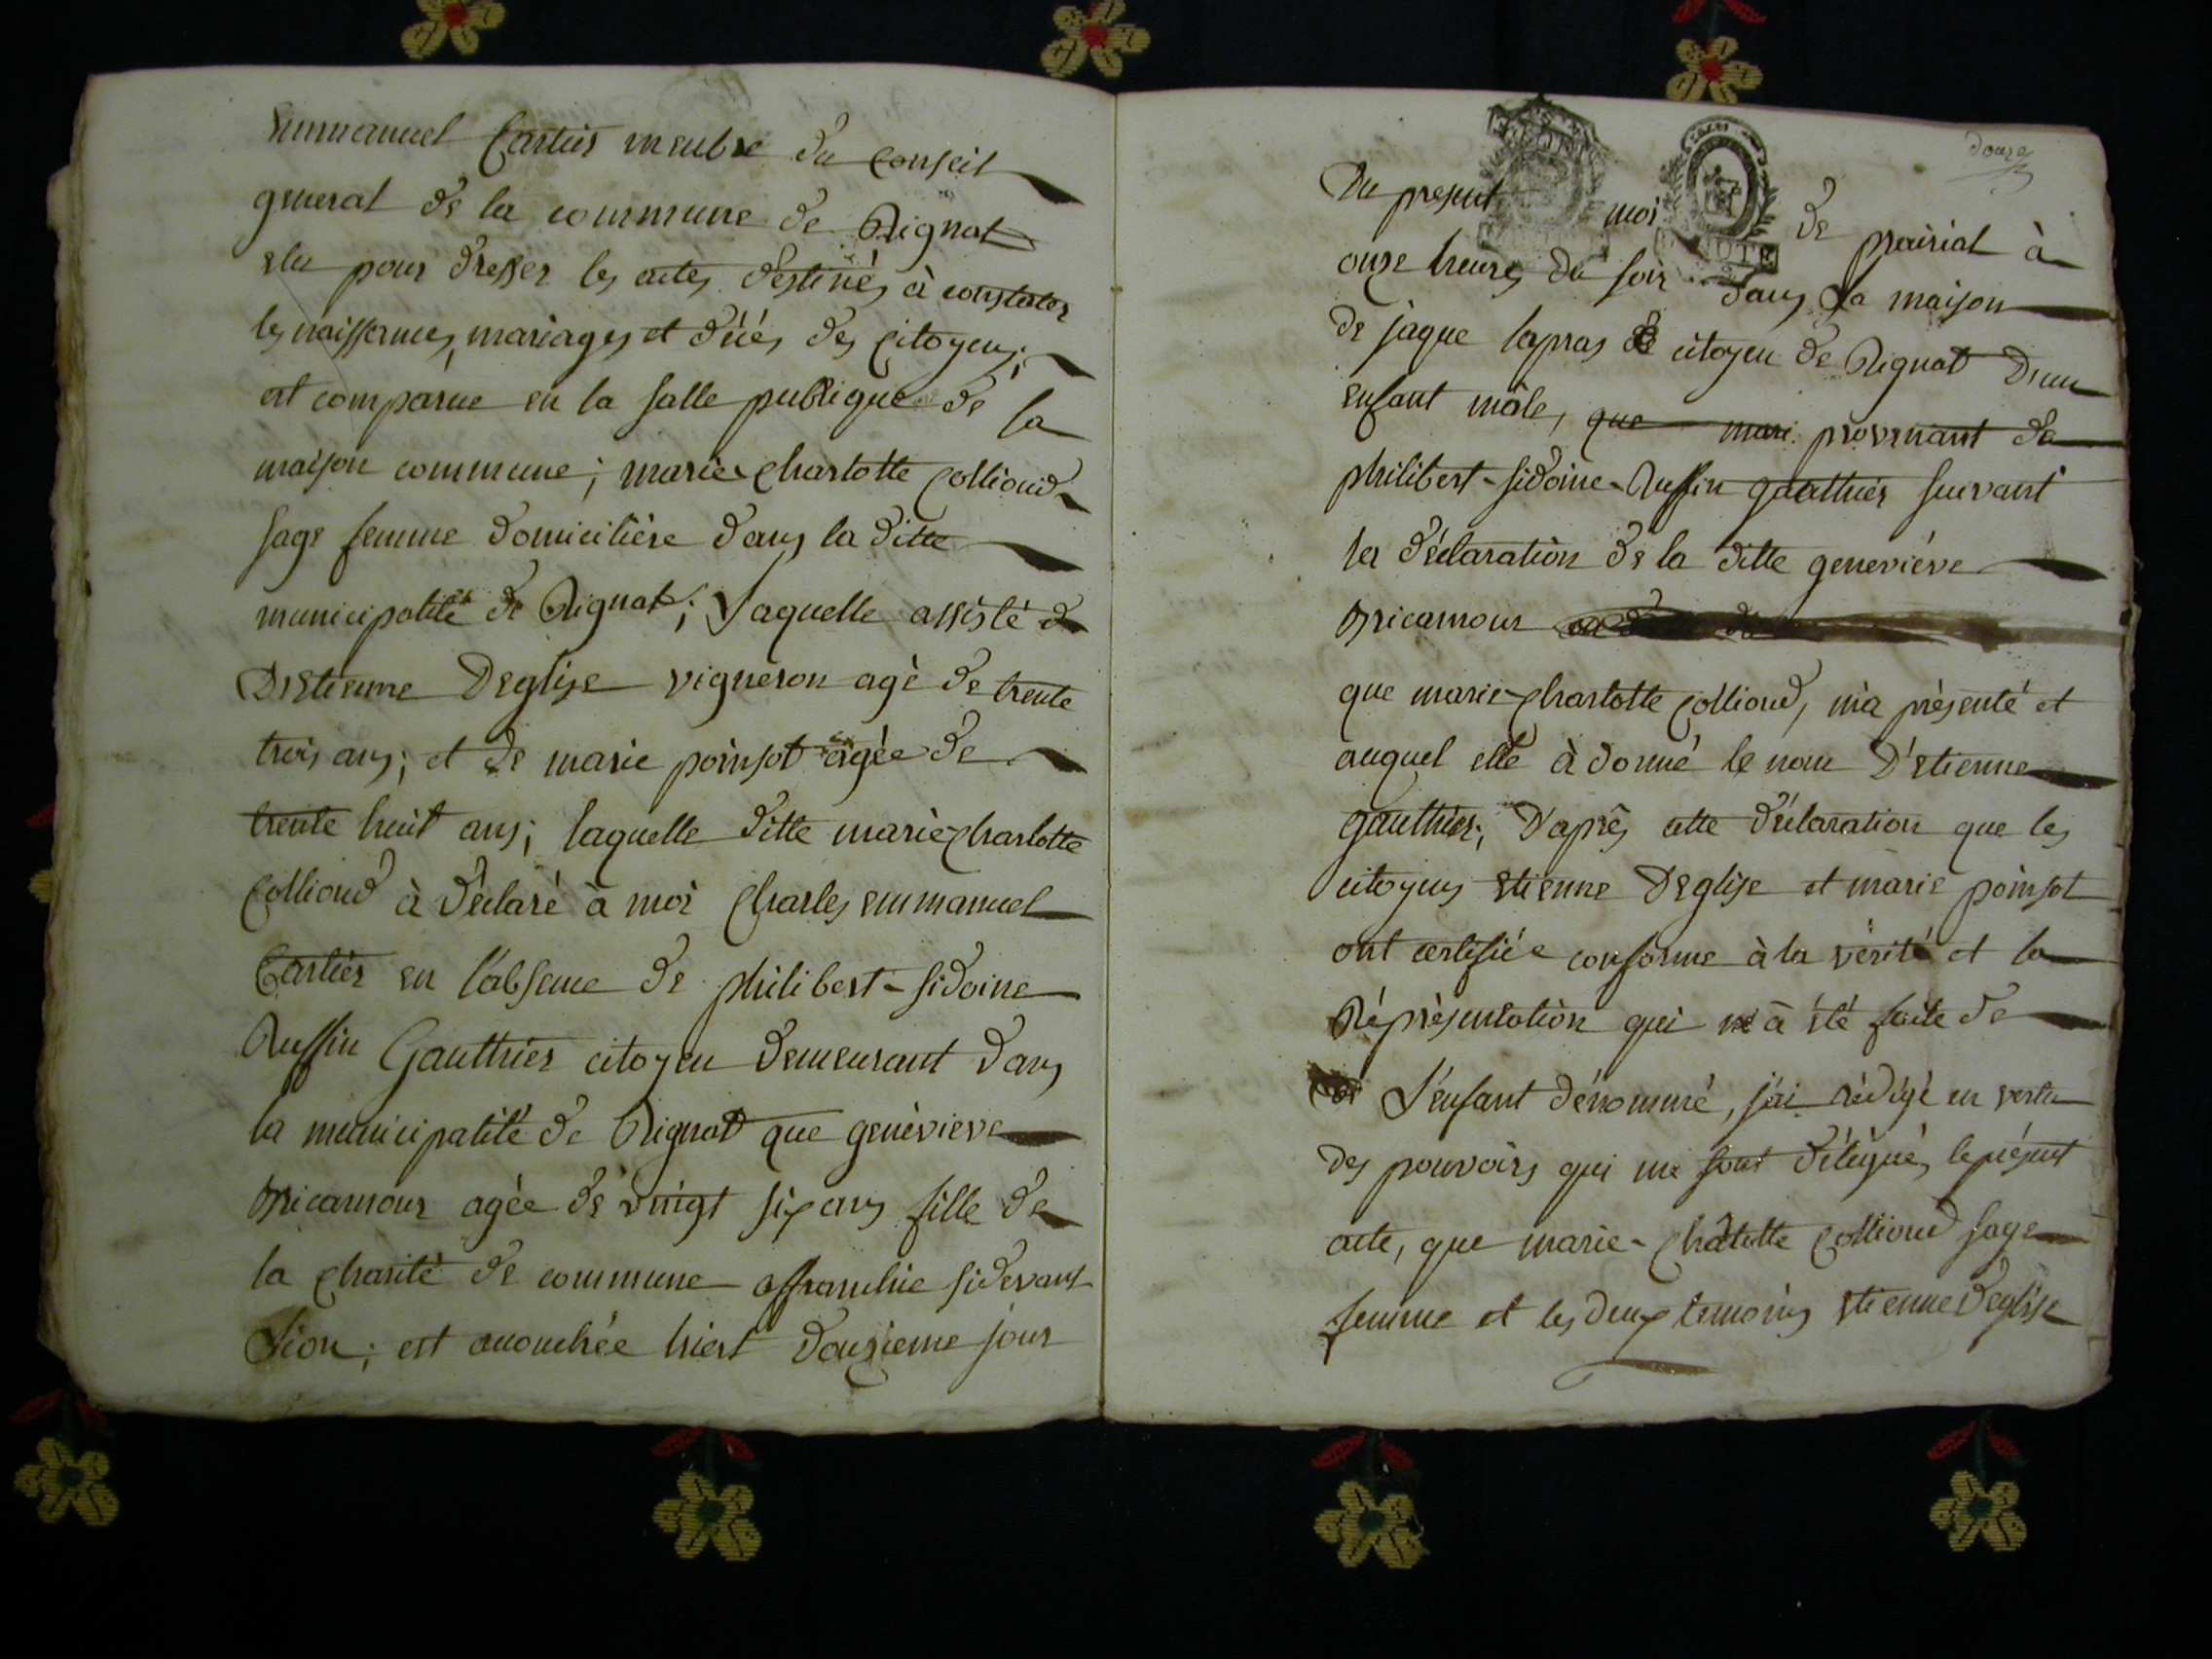 Emmanuel Cartier menbre du conseil
general de la commune de Rignat
elu pour dresser les actes destinés à constater
les naissances, mariages et décés des citoyens;
est comparue en la salle publique de la
maison commune; marie charlotte collioud
sage femme domicilière dans la ditte
municipalité de Rignat; Laquelle assisté de
D'Etienne Deglise vigneron agé de trente
trois ans; et de marie poinsot agée de
trente huit ans; laquelle ditte marie charlotte
collioud à déclaré à moi Charles emmanuel
Cartier en l'absence de philibert-sidoine
Ruffin Gauthier citoyen demeurant dans
la municipalité de Rignat que geneviève
Micamour agée de vingt six ans fille de
la charité de commune affranchie sidevant
Lion; est accouchée hiert douzieme jour
douze
Du present moi de prairial à
onze heures du soir dans la maison
de jaque lapras citoyen de Rignat D'un
enfant mâle, que mari provenant de
philibert-sidoine-Ruffin gauthier suivant
la déclaration de la ditte geneviève
Micamour
que marie charlotte collioud, m'a présenté et
auquel elle à donné le nom D'étienne
gauthier; D'après cette déclaration que les
citoyens etienne Deglise et marie poinsot
ont certifiée conforme à la vérité et la
Réprésentation qui m'à été faite de
L'enfant dénommé, j'ai rédigé en vertu
des pouvoirs qui me sont délégués le présent
acte, que marie-chalotte collioud sage
femme et les deux temoins etienne Déglise